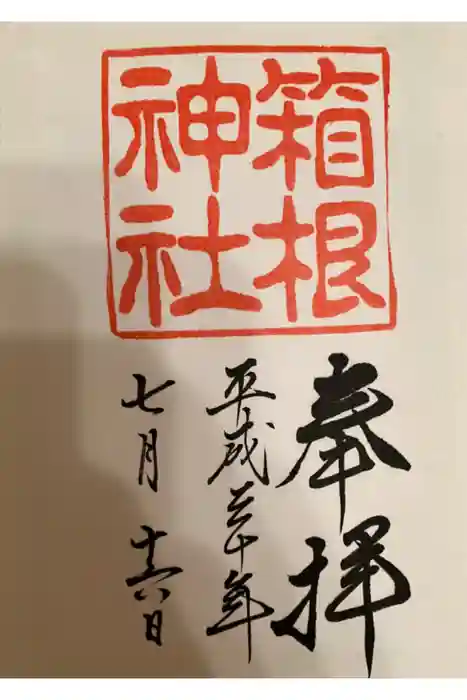 箱根
神社
奉拝
平成三十年
七月十六日